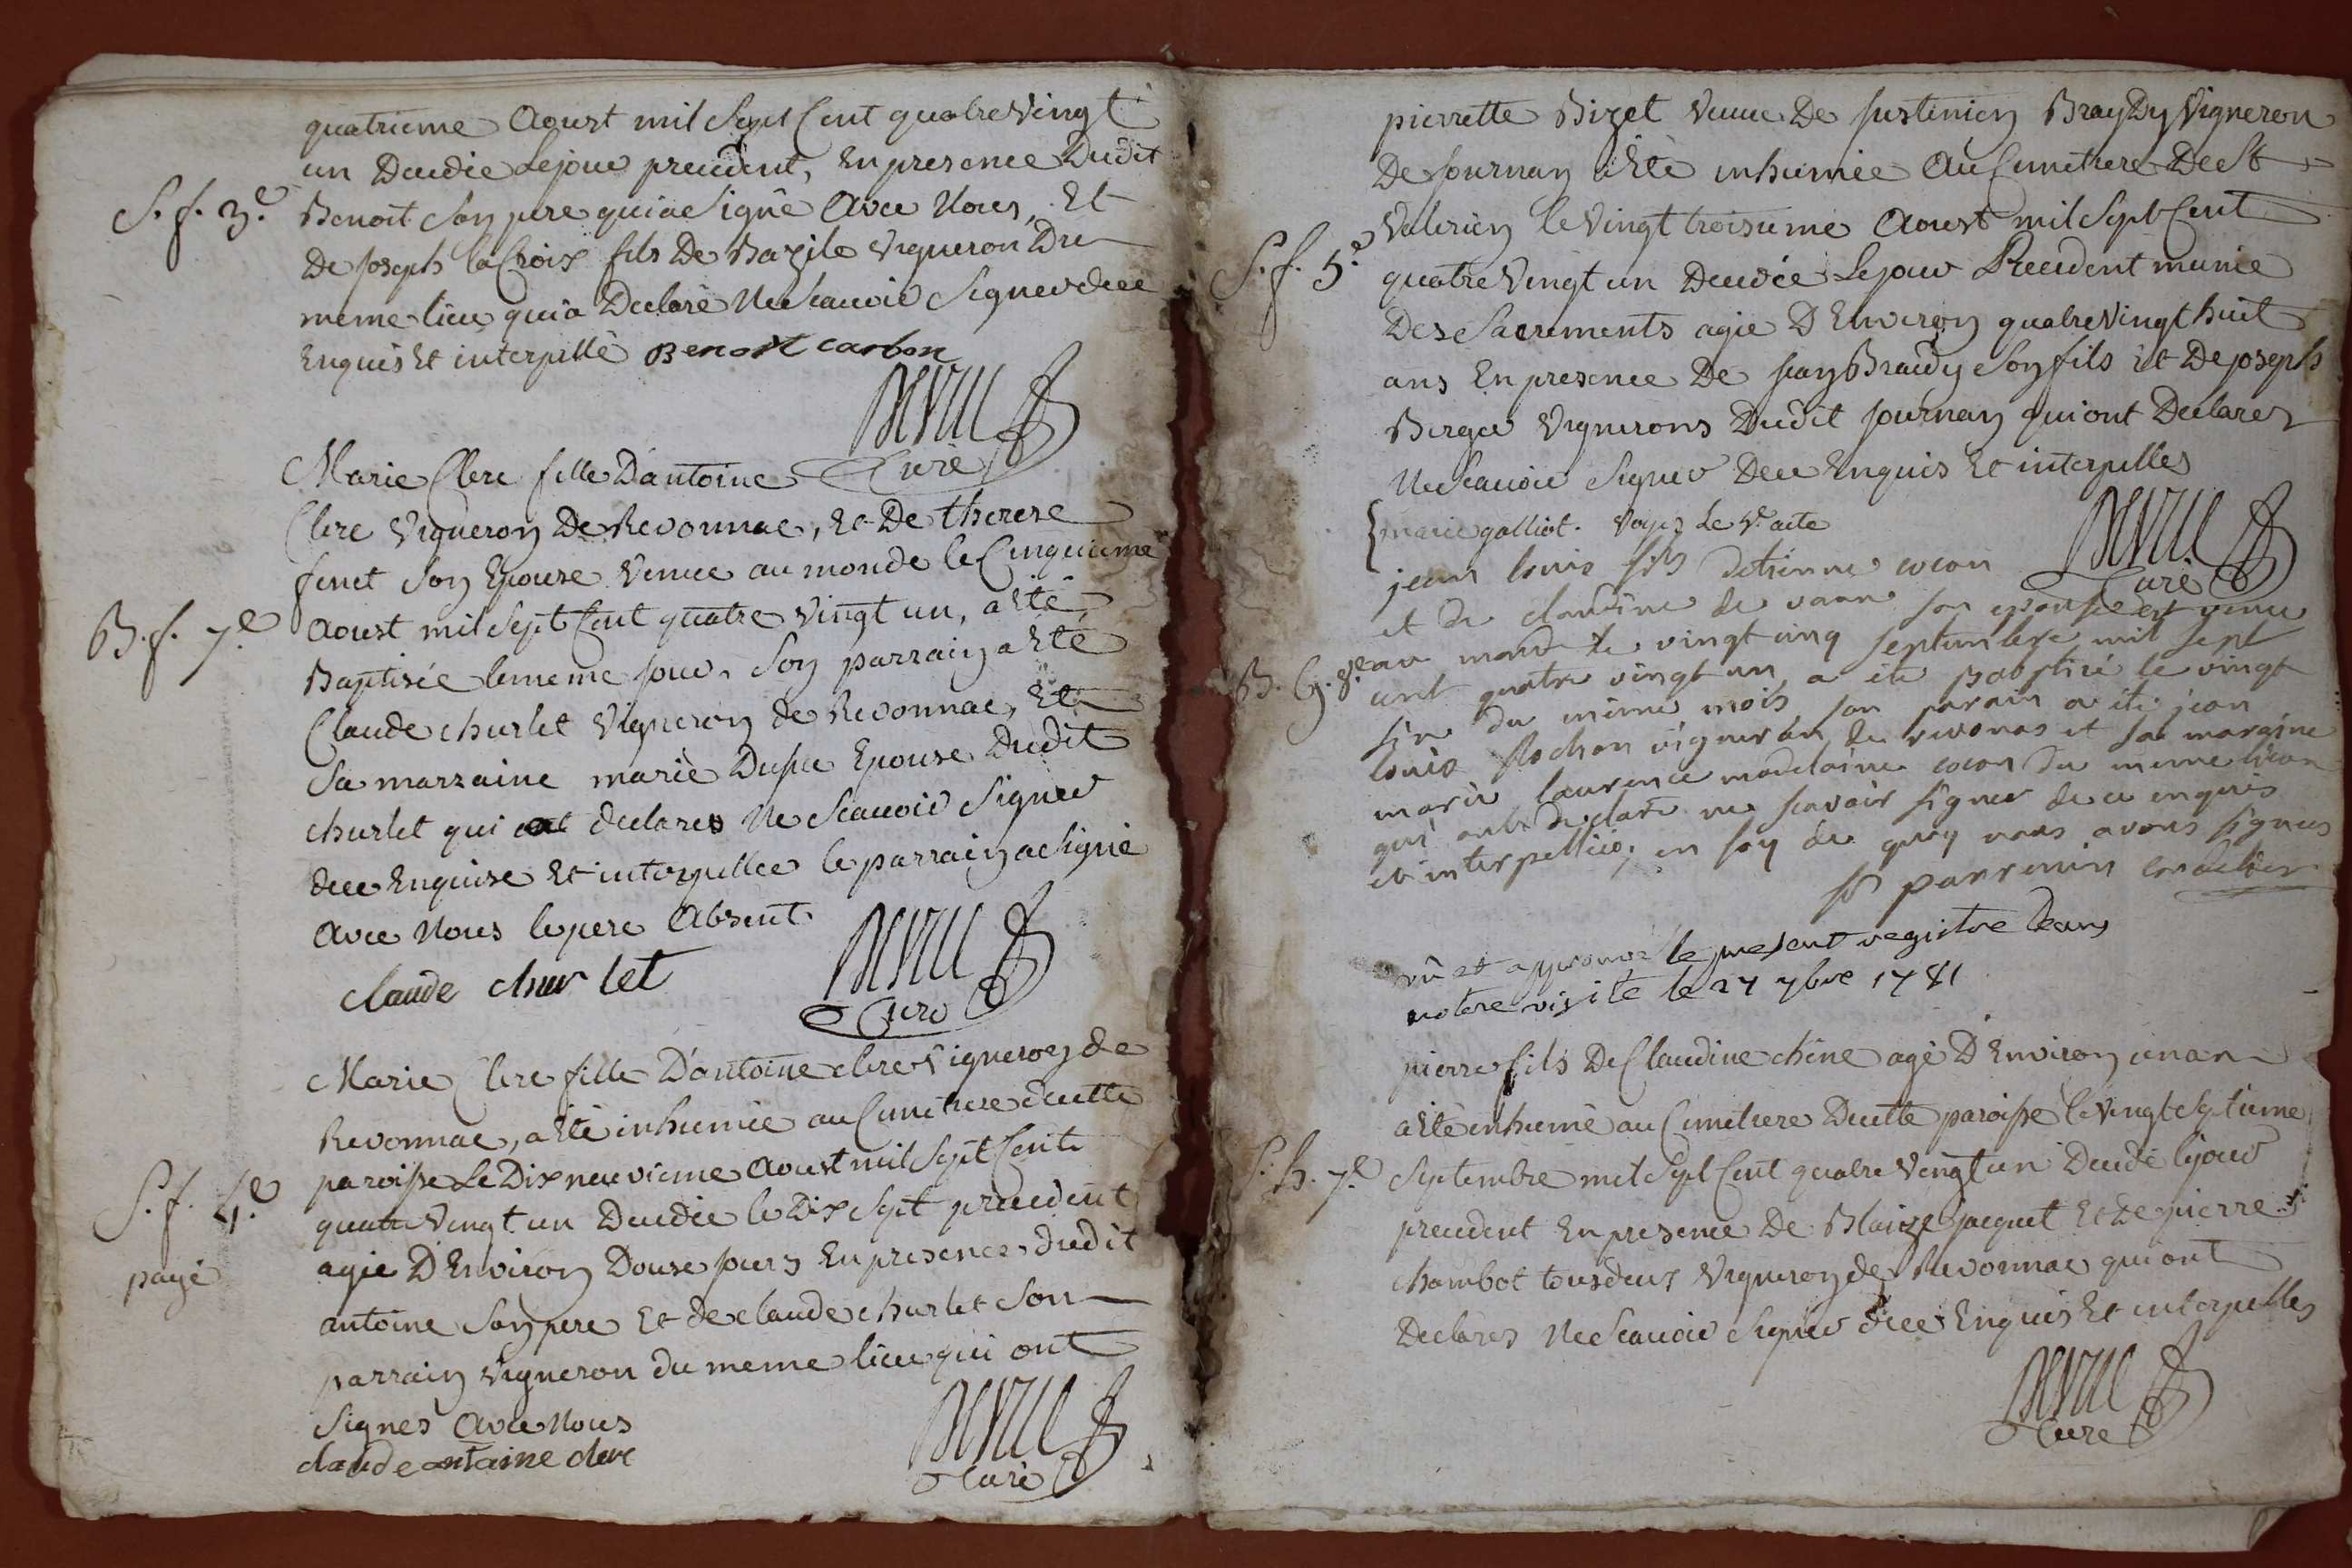 quatrieme Aoust mil Sept Cent quatre Vingt
un Decedée Lejour precedent, En presence Dudit
S. f. 3.e Benoit Son pere qui a Signé Avec Nous, Et
De Joseph la Croix fils De Bazile Vigneron Du
meme lieu qui a Declaré Ne Scauoir Signer dece
Enquis Et interpellé Benoit carbon
Curé
Marie Clerc fille D'antoine
Clerc Vigneron De Revonnac, Et De therese
finet Son Epouse Venue au monde le Cinquieme
B. f. 7.e Aoust mil Sept Cent quatre Vingt un, a Eté
Baptisée lememe jour, Son parrain a Eté
Claude churlet Vigneron de Revonnac, Et
Sa marraine marie Dupuc Epouse Dudit
churlet qui a declarés Ne Scauoir Signer
dece Enquise Et interpellee le parrain a Signé
Avec Nous le pere Absent
claude churlet
Curé
Marie Clerc fille D'antoine clerc Vigneron de
Revonnac, a Eté inhumée au Cimetiere decette
paroisse Le Dix neuvieme Aoust mil Sept Cent
S. f. 4.e quatre Vingt un Decedée le Dix Sept precedent
payé agée D'Environ Douse jours En presence dudit
antoine Son pere Et de claude churlet Son
parrain Vigneron du meme lieu qui ont
Signés Avec Nous
claude antoine clerc
Curé
pierrette Bizet Veuve De Justinien Braydy Vigneron
De Journan a Eté inhumée Au Cimetiere De St
Valerien le Vingt troisieme Aoust mil Sept Cent
S. f. 5.e quatre Vingt un Decedée Lejour Precedent munie
Des Sacrements agée D'Environ quatre Vingt huit
ans En presence De jean Braidy Son fils Et De joseph
Berger Vignerons Dudit Journan qui ont Declarés
Ne Scauoir Signer Dece Enquis Et interpellés
marie galliot. Voyés Le V.e acte
Curé
jean louis fils detienne cocon
et de claudine de vaon son epouse est venu
B. G. 8.e au monde le vingt cinq septembre mil sept
cent quatre vingt un, a été Baptisé le vingt
six du même mois son parain a été jean
louis Rochon vigneron de revonas et sa maraine
marie laurence madelaine cocon du meme lieu
qui ont declaré ne scavoir signer de ce enquis
et interpellés; en foy de quoy nous avons signés
parremin
vû et approuvé le present registre dans
notre visite le 27 7bre 1781
pierre fils De Claudine chêne agé D'Environ un an
a Eté inhumé au Cimetiere Decette paroisse le Vingt Septieme
S. h. 7.e Septembre mil Sept Cent quatre Vingt un Decedé lejour
precedent En presence De Blaize jacquet Et De pierre
chambot tous deux Vigneron de Revonnac qui ont
Declarés Ne Scauoir Signer dece Enquis Et interpellés
Curé